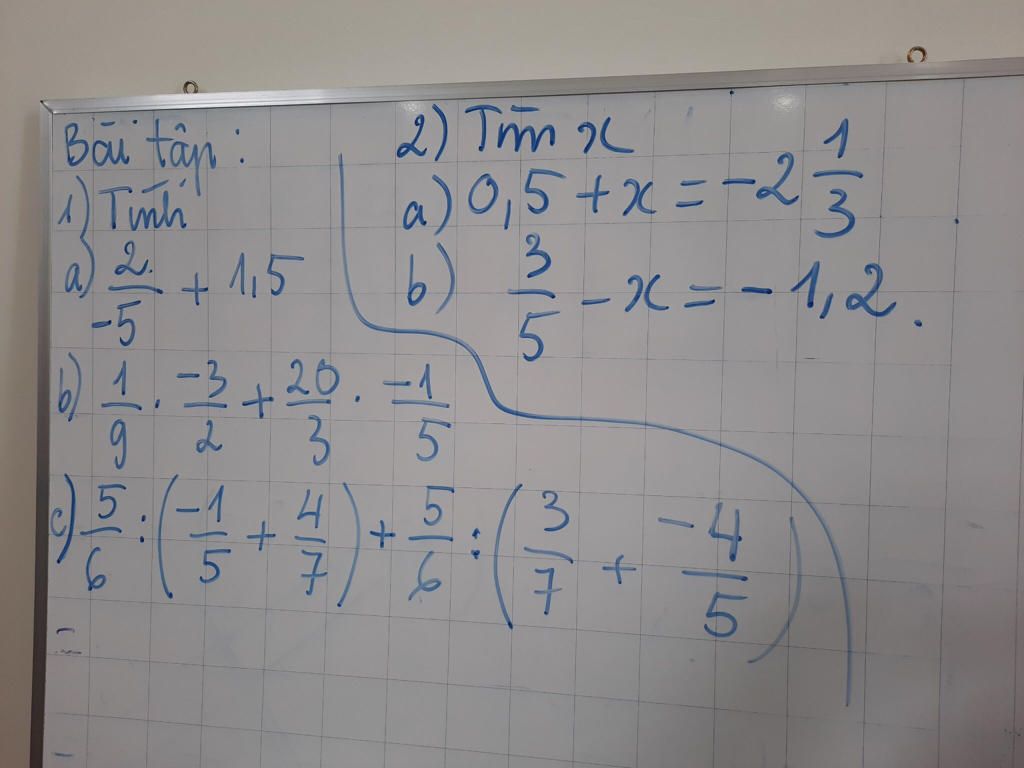 Bài tập :
1) Tính
a) 2/-5 + 1,5
b) 1/9 . -3/2 + 20/3 . -1/5
c) 5/6 : (-1/5 + 4/7) + 5/6 : (3/7 + -4/5)
2) Tìm x
a) 0,5 + x = -2 1/3
b) 3/5 - x = -1,2.